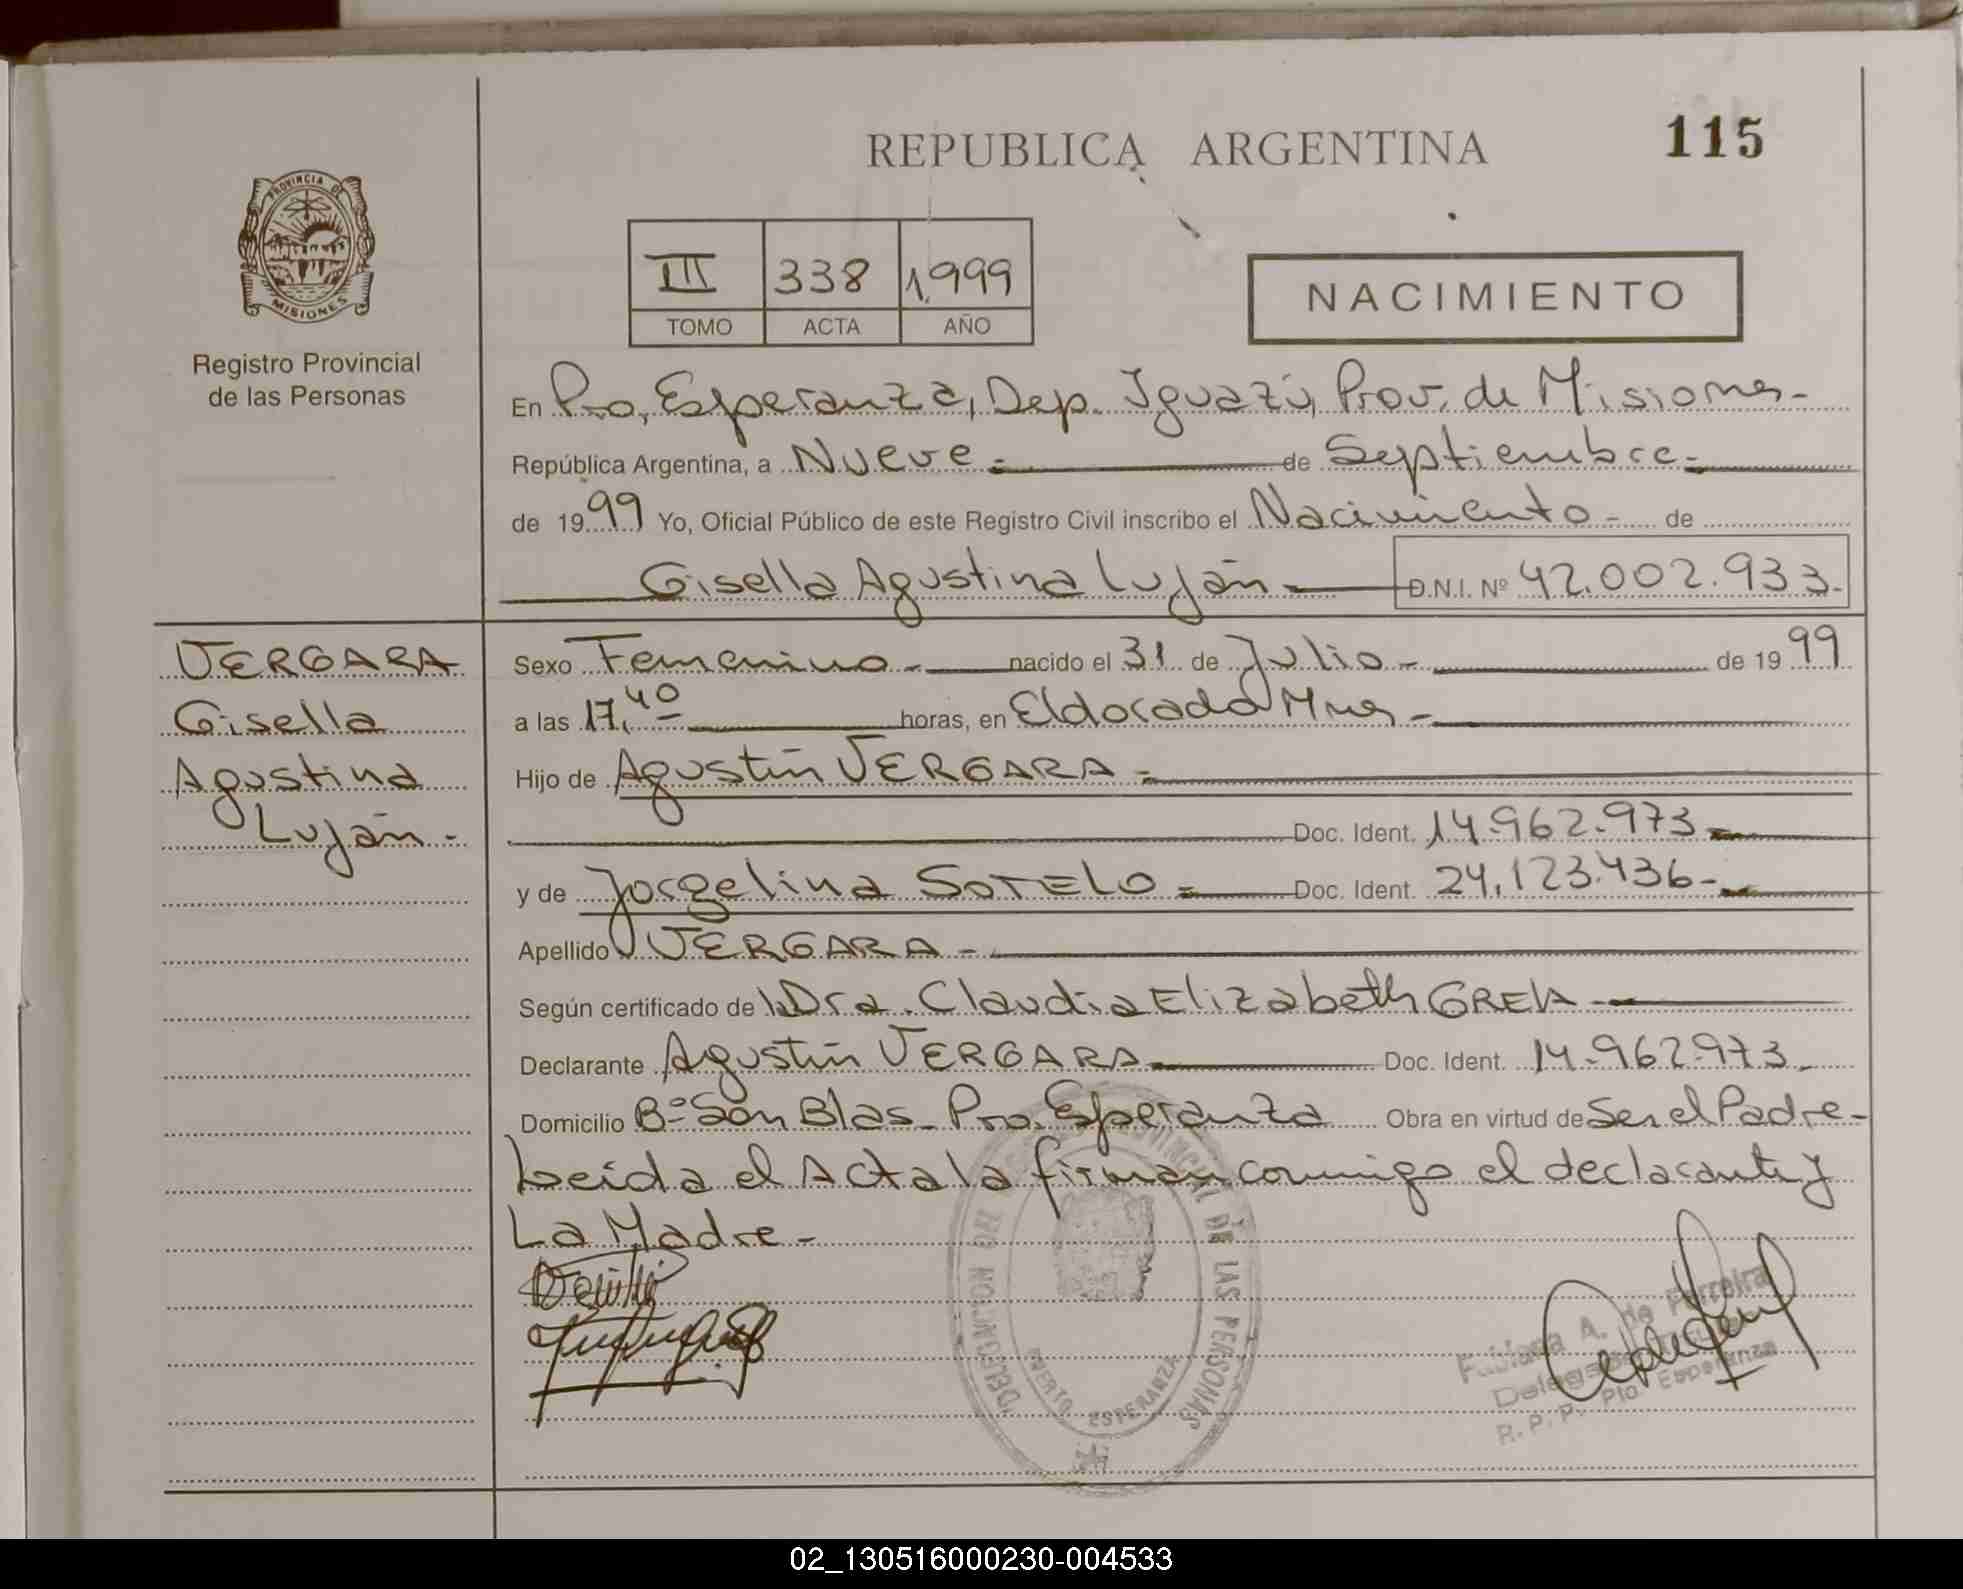 REPUBLICA ARGENTINA
115
PROVINCIA DE
MISIONES
Registro Provincial
de las Personas
III 338 1.999
TOMO ACTA AÑO
NACIMIENTO
En Pto, Esperanza, Dep. Iguazú, Prov. de Misiones-
República Argentina, a Nueve - de Septiembre-
de 1999 Yo, Oficial Público de este Registro Civil inscribo el Nacimiento - de
Gisella Agustina Luján - D.N.I. Nº 42.002.933-
VERGARA
Gisella
Agustina
Luján-
Sexo Femenino - nacido el 31 de Julio - de 1999
a las 17,40 horas, en Eldorado Mnes -
Hijo de Agustín VERGARA -
Doc. Ident. 14.962.973-
y de Jorgelina SOTELO - Doc. Ident. 24.123.436-
Apellido VERGARA -
Según certificado de la Dra. Claudia Elizabeth GRELA -
Declarante Agustín VERGARA Doc. Ident. 14.962.973-
Domicilio Bº San Blas - Pto. Esperanza Obra en virtud de Ser el Padre-
Leida el Acta la firman conmigo el declarante y
La Madre-
DELEGACION DEL REGISTRO PROVINCIAL DE LAS PERSONAS
PUERTO ESPERANZA
Fabiana A. de Ferreira
R.P.P. Pto. Esperanza
02_130516000230-004533